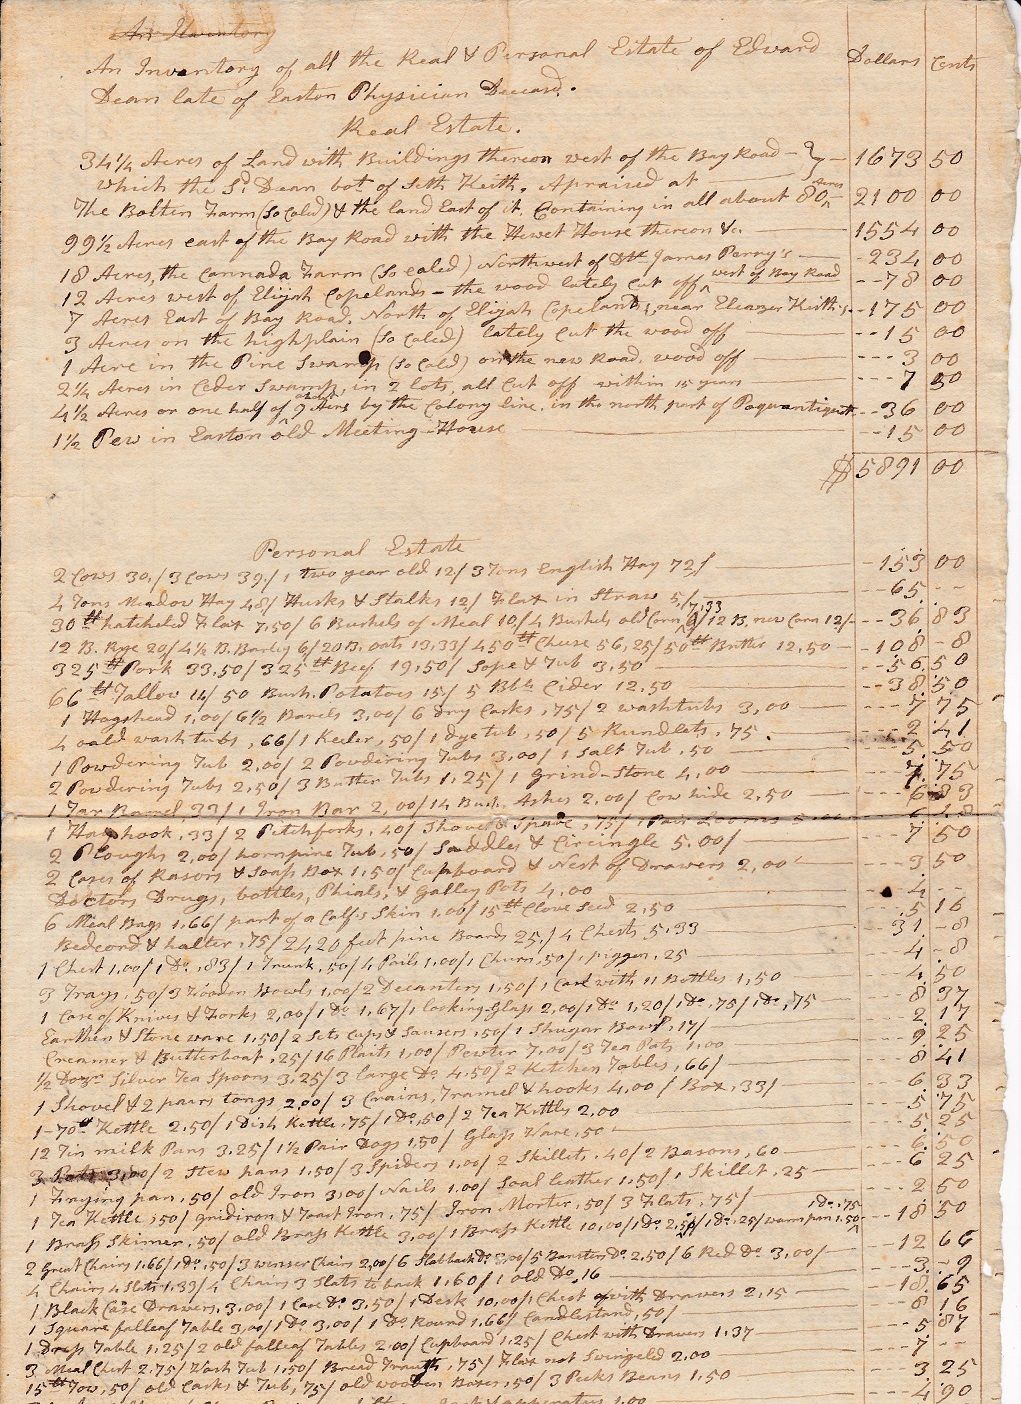 An Inventory
An Inventory of all the Real & Personal Estate of Edward Dollars Cents
Dean late of Easton Physician Deceasd.
Real Estate.
34 1/4 Acres of Land with Buildings thereon west of the Bay Road
which the Sd. Dean bot. of Seth Keith. Apraised at 1673 50
The Bolten Farm (So Caled) & the land East of it, Containing in all about 80 Acres 2100 00
99 1/2 Acres east of the Bay Road with the Hewet House thereon &c. 1554 00
18 Acres, the Cannada Farm (So caled) Northwest of James Perry's 234 00
12 Acres west of Elijah Copelands - the wood lately Cut off west of Bay Road 78 00
7 Acres East of Bay Road, North of Elijah Copelands, near Eleazer Keith's 175 00
3 Acres on the highplain (So Caled) lately Cut the wood off 15 00
1 Acre in the Pine Swamp (So Cald) on the new Road, wood off 3 00
2 1/4 Acres in Ceder Swamp, in 2 lots, all Cut off within 15 years 7 50
4 1/2 Acres or one half of 9 Acres by the Colony line, in the north part of Poquantiqut 36 00
1 1/2 Pew in Easton old Meeting-House 15 00
$ 5891 00
Personal Estate
2 Cows 30,/ 3 Cows 39,/ 1 two year old 12/ 3 Tons English Hay 72,/ 153 00
4 Tons Meadow Hay 48/ Husks & Stalks 12/ Flax in Straw 5,/ 65 --
30 tt hatcheled Flax 7,50/ 6 Bushels of Meal 10,/ 4 Bushels old Corn 7,33/ 12 B. new Corn 12/ 36 83
12 B. Rye 20/ 4 1/2 B. Barley 6/ 20 B. oats 13,33/ 450 tt Cheese 56,25/ 50 tt Butter 12,50 108 - 8
325 tt Pork 33,50/ 325 tt Beef 19,50/ Sope & Tub 3,50 56 50
66 tt Tallow 11/ 50 Bush. Potatoes 15/ 5 Bls. Cider 12,50 38 50
1 Hogshead 1,00/ 6 1/2 Barels 3,00/ 6 dry Casks ,75/ 2 washtubs 3,00 7 75
4 oald wash tubs ,66/ 1 Keeler ,50/ 1 dye tub ,50/ 5 Rundlets ,75. 2 41
1 Powdering Tub 2,00/ 2 Powdering Tubs 3,00/ 1 Salt Tub ,50 5 50
2 Powdering Tubs 2,50/ 3 Butter Tubs 1,25/ 1 Grind-Stone 4,00 7 75
1 Tar Barrel ,33/ 1 Iron Bar 2,00/ 14 Bush. Ashes 2,00/ Cow hide 2,50 6 83
1 Hay hook ,33/ 2 Pitchforks ,40/ Shovel & Spade ,75/
2 Ploughs 2,00/ hornpine Tub ,50/ Saddles & Circingle 5.00/ 7 50
2 Cases of Rasors & Soap Box 1,50/ Cupboard & Nest of Drawers 2,00 3 50
Doctors Drugs, bottles, Phials, & Galley Pots 4,00 4 --
6 Meal Bags 1,66/ part of a Calfs Skin 1,00/ 15 tt Clove Seed 2,50 5 16
Bedcord & halter ,75/ 2420 feet pine Boards 25,/ 4 Chests 5,33 31 - 8
1 Chest 1,00/ 1 Do. ,83/ 1 Trunk ,50/ 4 Pails 1,00/ 1 Churn ,50/ 1 piggen ,25 4 - 8
3 Trays ,50/ 3 Wooden Bowls 1,00/ 2 Decanters 1,50/ 1 Case with 11 Bottles 1,50 4 50
1 Case of Knives & Forks 2,00/ 1 Do 1,67/ 1 looking-Glass 2,00/ 1 Do 1,20/ 1 Do ,75/ 1 Do ,75 8 37
Earthen & Stone ware 1,50/ 2 Sets Cups & Sausers ,50/ 1 Shugar Bowl ,17/ 2 17
Creamer & Butterboat ,25/ 16 Plaits 1,00/ Pewter 7,00/ 3 Tea Pots 1,00 9 25
1/2 Dozn Silver Tea Spoons 3,25/ 3 Large Do 4,50/ 2 Ketchen Tables ,66/ 8 41
1 Shovel & 2 pairs tongs 2,00/ 3 Crains, Tramel & hooks 4,00/ Box ,33/ 6 33
1-70 tt Kettle 2,50/ 1 Dish Kettle ,75/ 1 Do ,50/ 2 Tea Kettles 2,00 5 75
12 Tin milk Pans 3,25/ 1 1/2 Pair Dogs 1,50/ Glass Ware ,50 5 25
3 Pots 3,00/ 2 Stew pans 1,50/ 3 Spiders 1,00/ 2 Skillets ,40/ 2 Basons ,60 6 50
1 Frying pan ,50/ old Iron 3,00/ Nails 1,00/ Soal leather 1,50/ 1 Skillet ,25 6 25
1 Tea Kettle ,50/ gridiron & Toast Iron ,75/ Iron Morter ,50/ 3 Flats ,75/ 2 50
1 Brass Skimer ,50/ old Brass Kettle 3,00/ 1 Brass Kettle 10,00/ 1 Do 2,50/ 1 Do ,25/ warm pan 1,50 1 Do ,75 18 50
2 Great Chairs 1,66/ 1 Do ,50/ 3 winser Chairs 2,00/ 6 Slat back Do 3,00/ 5 Banister Do 2,50/ 6 Red Do 3,00/ 12 66
4 Chairs 4 Slats 1,33/ 4 Chairs 3 Slats to back 1.60/ 1 old Do ,16 3 - 9
1 Black Case Drawers, 3,00/ 1 Case Do 3,50/ 1 Desk 10,00/ 1 Chest with Drawers 2,15 18 65
1 Square falleaf Table 3,00/ 1 Do 3,00/ 1 Do Round 1,66/ Candlestand ,50/ 8 16
1 Dress Table 1,25/ 2 old falleaf Tables 2,00/ Cupboard 1,25/ Chest with Drawers 1,37 5 87
3 Meal Chest 2,75/ Wash Tub 1,50/ Bread Trough ,75/ Flax not Swingeld 2,00 7 -
15 tt Tow ,50/ old Casks & Tub ,75/ old wooden Boxes ,50/ 3 Pecks Beans 1,50 3 25
4 90